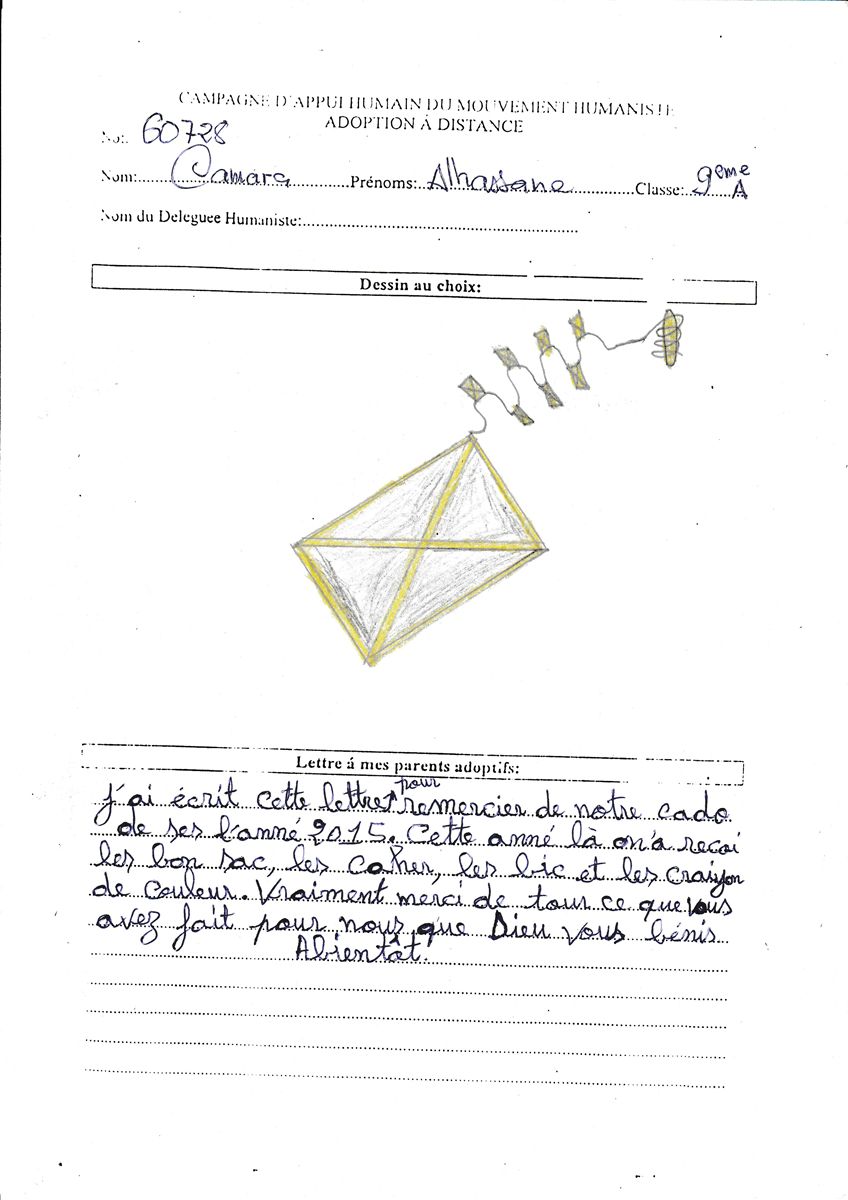 CAMPAGNE D'APPUI HUMAIN DU MOUVEMENT HUMANISTE
ADOPTION À DISTANCE
No:. 60728
Nom: Camara Prénoms: Alhassane Classe: 9eme A
Nom du Deleguee Humaniste:
Dessin au choix:
Lettre á mes parents adoptifs:
J'ai écrit cette lettre pour remercier de notre cado
de ses l'anné 2015. Cette anné là on a recoi
les bon sac, les caher, les bic et les craiyon
de couleur. Vraiment merci de tour ce que vous
avez fait pour nous que Dieu vous bénis
Abientât.